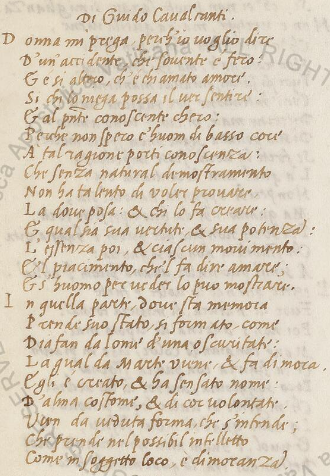 Di Guido Caualcanti.
Donna mi prega, perch'io voglio dire
D'un'accidente, che souente e fero:
Ge si altero, ch'e chiamato amore.
Si chi lo niega possa il uer sentire:
G al pnte conoscente chero:
Perche non spero c'huom di basso core
A tal ragione porti conoscenza:
Che senza natural demostramento
Non ha talento di voler prouare
La doue posa: & chi lo fa creare:
G qual ha sua uertute, & sua potenza:
L'essenza poi, & ciascun mouimento:
G'l piacimento, che'l fa dire amare,
G s'huomo per ueder lo puo mostrare.
In quella parte, doue sta memora
Prende suo stato, si formato, come
Diafan da lome d'una oscuritate:
La qual da Marte uiene, & fa dimora.
Egli e creato, & ha sensato nome:
D'alma costome, & di cor volontate.
Vien da ueduta forma, che s'intende;
Che prende nel possibil intelletto
Come in soggetto loco, e dimoranza